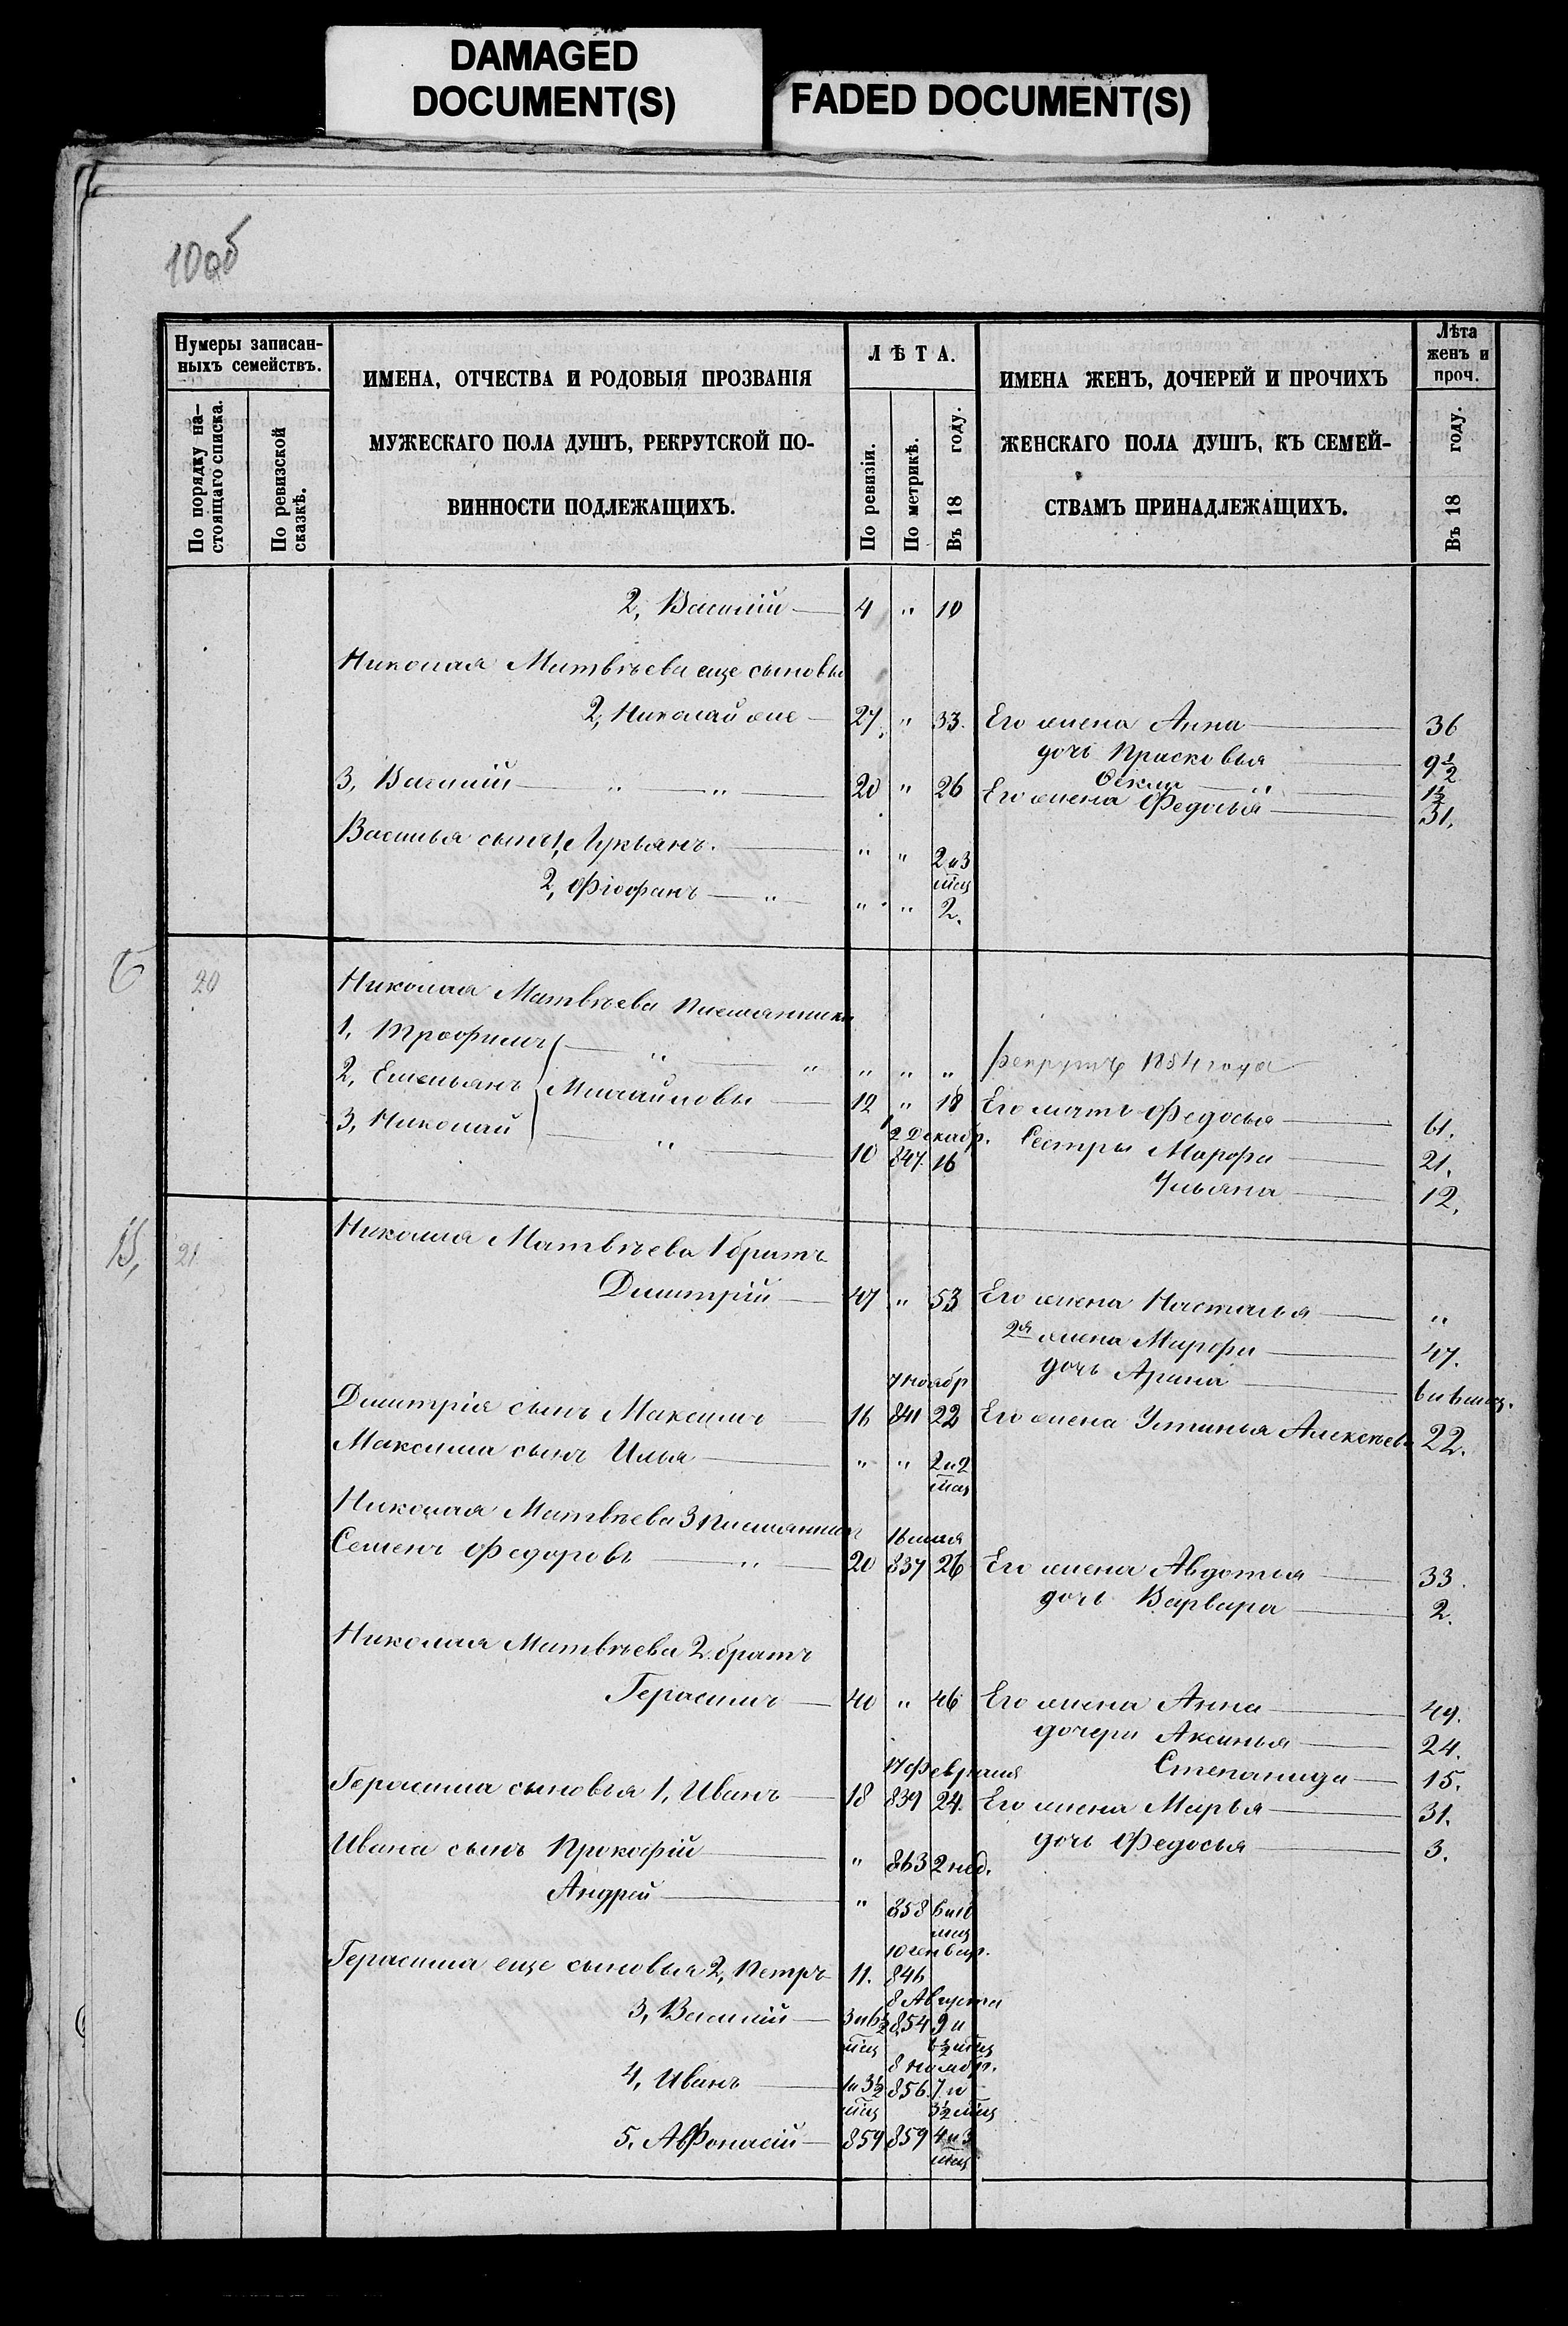 DAMAGED
DOCUMENT(S)
FADED DOCUMENT(S)
10об
Нумеры записан-
ныхъ семействъ.
По порядку на-
стоящаго списка.
По ревизской
сказкѣ.
ИМЕНА, ОТЧЕСТВА И РОДОВЫЯ ПРОЗВАНІЯ
МУЖЕСКАГО ПОЛА ДУШЪ, РЕКРУТСКОЙ ПО-
ВИННОСТИ ПОДЛЕЖАЩИХЪ.
ЛѢТА.
По ревизіи.
По метрикѣ.
Въ 18 году.
ИМЕНА ЖЕНЪ, ДОЧЕРЕЙ И ПРОЧИХЪ
ЖЕНСКАГО ПОЛА ДУШЪ, КЪ СЕМЕЙ-
СТВАМЪ ПРИНАДЛЕЖАЩИХЪ.
Лѣта
женъ и
проч.
Въ 18 году.
2, Василій — 4 " 10
Николая Матвѣева еще сыновья
2, Николай же — 27 " 33. Его жена Анна — 36
дочь Прасковья — 9½
Ѳекла — " 1½
3, Василій — " — " — 20 " 26 Его жена Федосья — 31.
Василья сыны 1, Лукьянъ. — " " 2 и 3
мѣц
2, Фіофанъ — " — " " 2.
20 Николая Матвѣева племянники
1, Трофимъ — " — " " " " рекрутъ 1854 года
2, Емельянъ Михайловы — 12 " 18 Его мать Федосья — 61.
12 Декабр.
3, Николай — " — 10 847. 16 Сестры Марфа — 21.
Ульяна — 12.
21 Николая Матвѣева 1 братъ
Димитрій — 47 " 53 Его жена Насталья — "
2я жена Марфа — 47.
дочь Арина — 6 и 6 мец.
7 ноябр
Димитрія сынъ Максимъ — 16 841 22 Его жена Устинья Алексѣева 22.
Максима сынъ Илья — " " 2 и 2
мѣц
Николая Матвѣева 3 племянникъ
16 мая
Семенъ Федоровъ — " — 20 837 26 Его жена Авдотья — 33.
дочь Варвара — 2.
Николая Матвѣева 2. братъ
Герасимъ — 40 " 46 Его жена Анна — 49.
дочери Аксинья — 24.
Степанида — 15.
17 Февраля
Герасима сыновья 1, Иванъ — 18 839 24. Его жена Марья — 31.
дочь Федосья — 3.
Ивана сынъ Прокофій — " 863 2 нед.
Андрей — " 858
мец
10 генвар.
Герасима еще сыновья 2, Петръ — 11. 846
8 Августа
3, Василій — 3 и 6½ 854 9 и
мѣц 6½ мѣц
8 ноябр.
4, Иванъ — 1 и 3½ 856. 7 и
мѣц 3½ мѣц
5, Афонасій — 859 859 4 и 3
мѣц